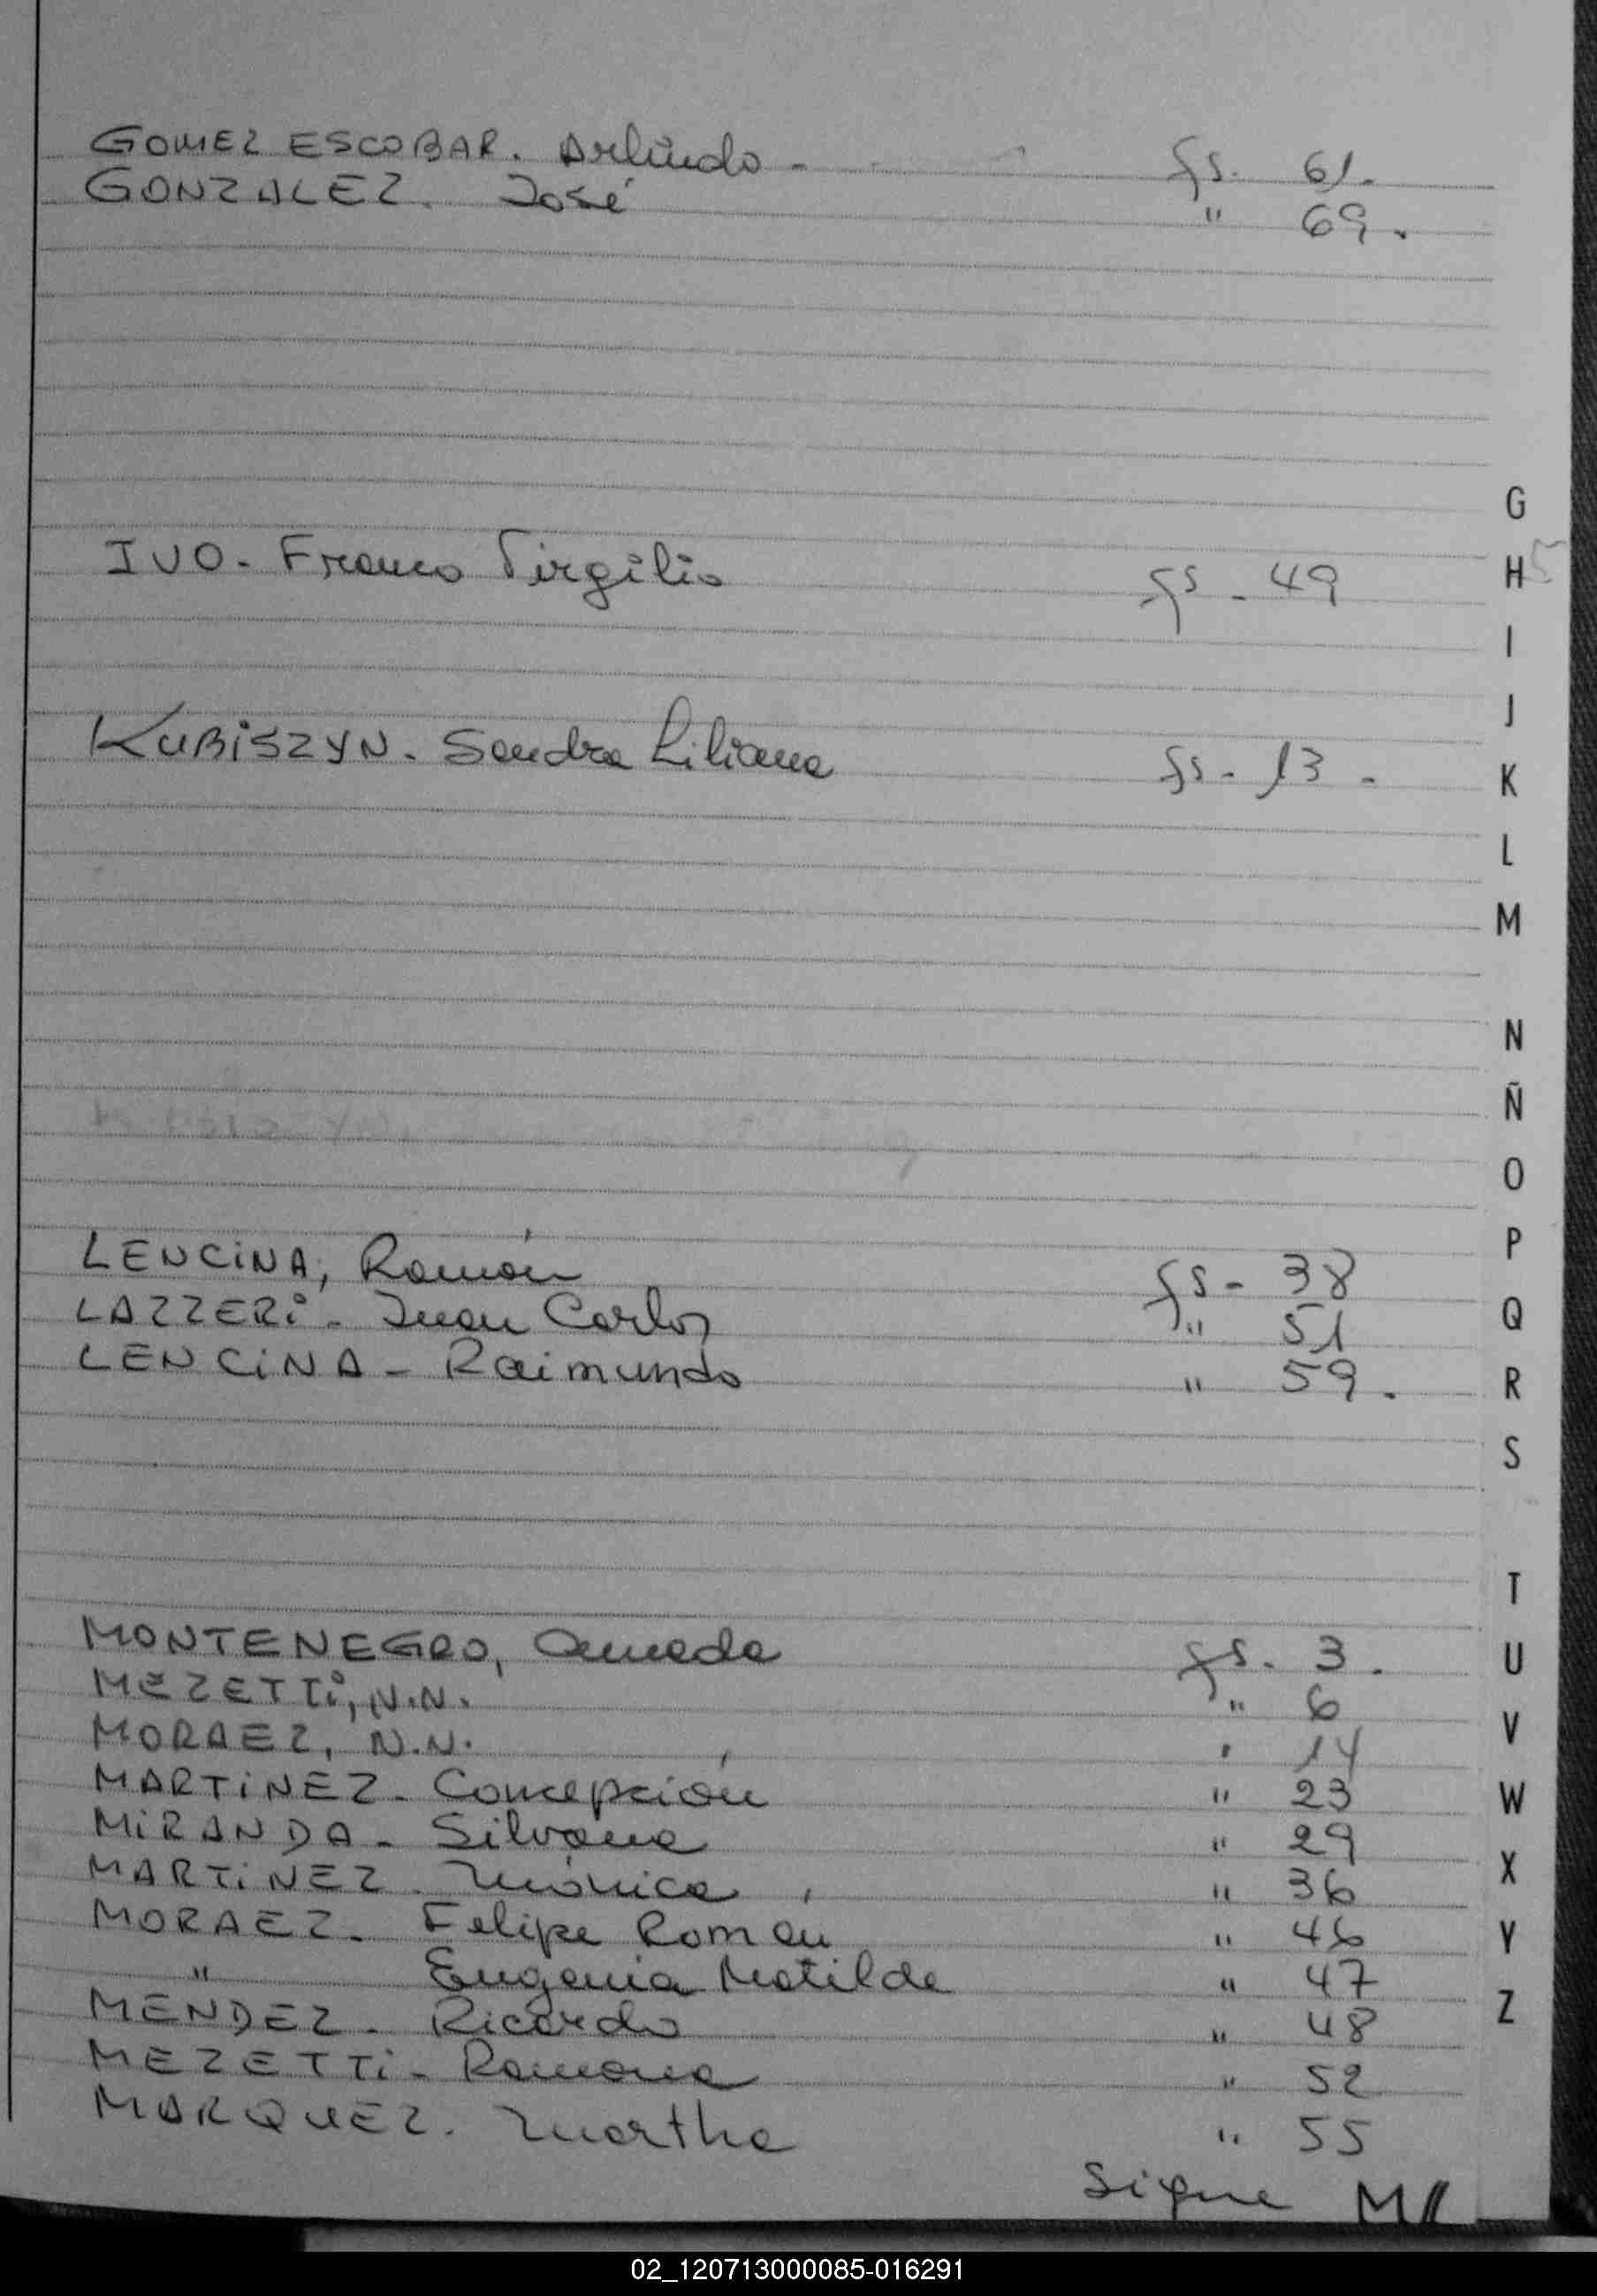 GOMEZ ESCOBAR. Arlindo - fs. 61.
GONZALEZ. José " 69.
G
IVO. Franco Virgilio fs - 49
H
I
J
KUBiSZYN. Sandra Liliana fs - 13 -
K
L
M
N
Ñ
O
P
LENCiNA, Ramón fs - 38
LAZZERi - Juan Carlos " 51
Q
LENCiNA - Raimundo " 59.
R
S
T
MONTENEGRO, fs. 3.
U
MEZETTi, N.N. " 6
MORAEZ, N.N. " 14
V
MARTiNEZ - Concepción " 23
W
MiRANDA - Silvana " 29
MARTiNEZ. Mónica " 36
X
MORAEZ - Felipe Romeu " 46
Y
" Eugenia Matilde " 47
MENDEZ - Ricardo " 48
Z
MEZETTi - Ramona " 52
MARQUEZ. Martha " 55
Sigue M//
02_120713000085-016291